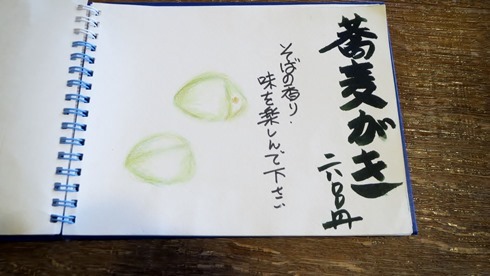 蕎麦がき
六八〇円
そばの香り・
味を楽しんで下さい